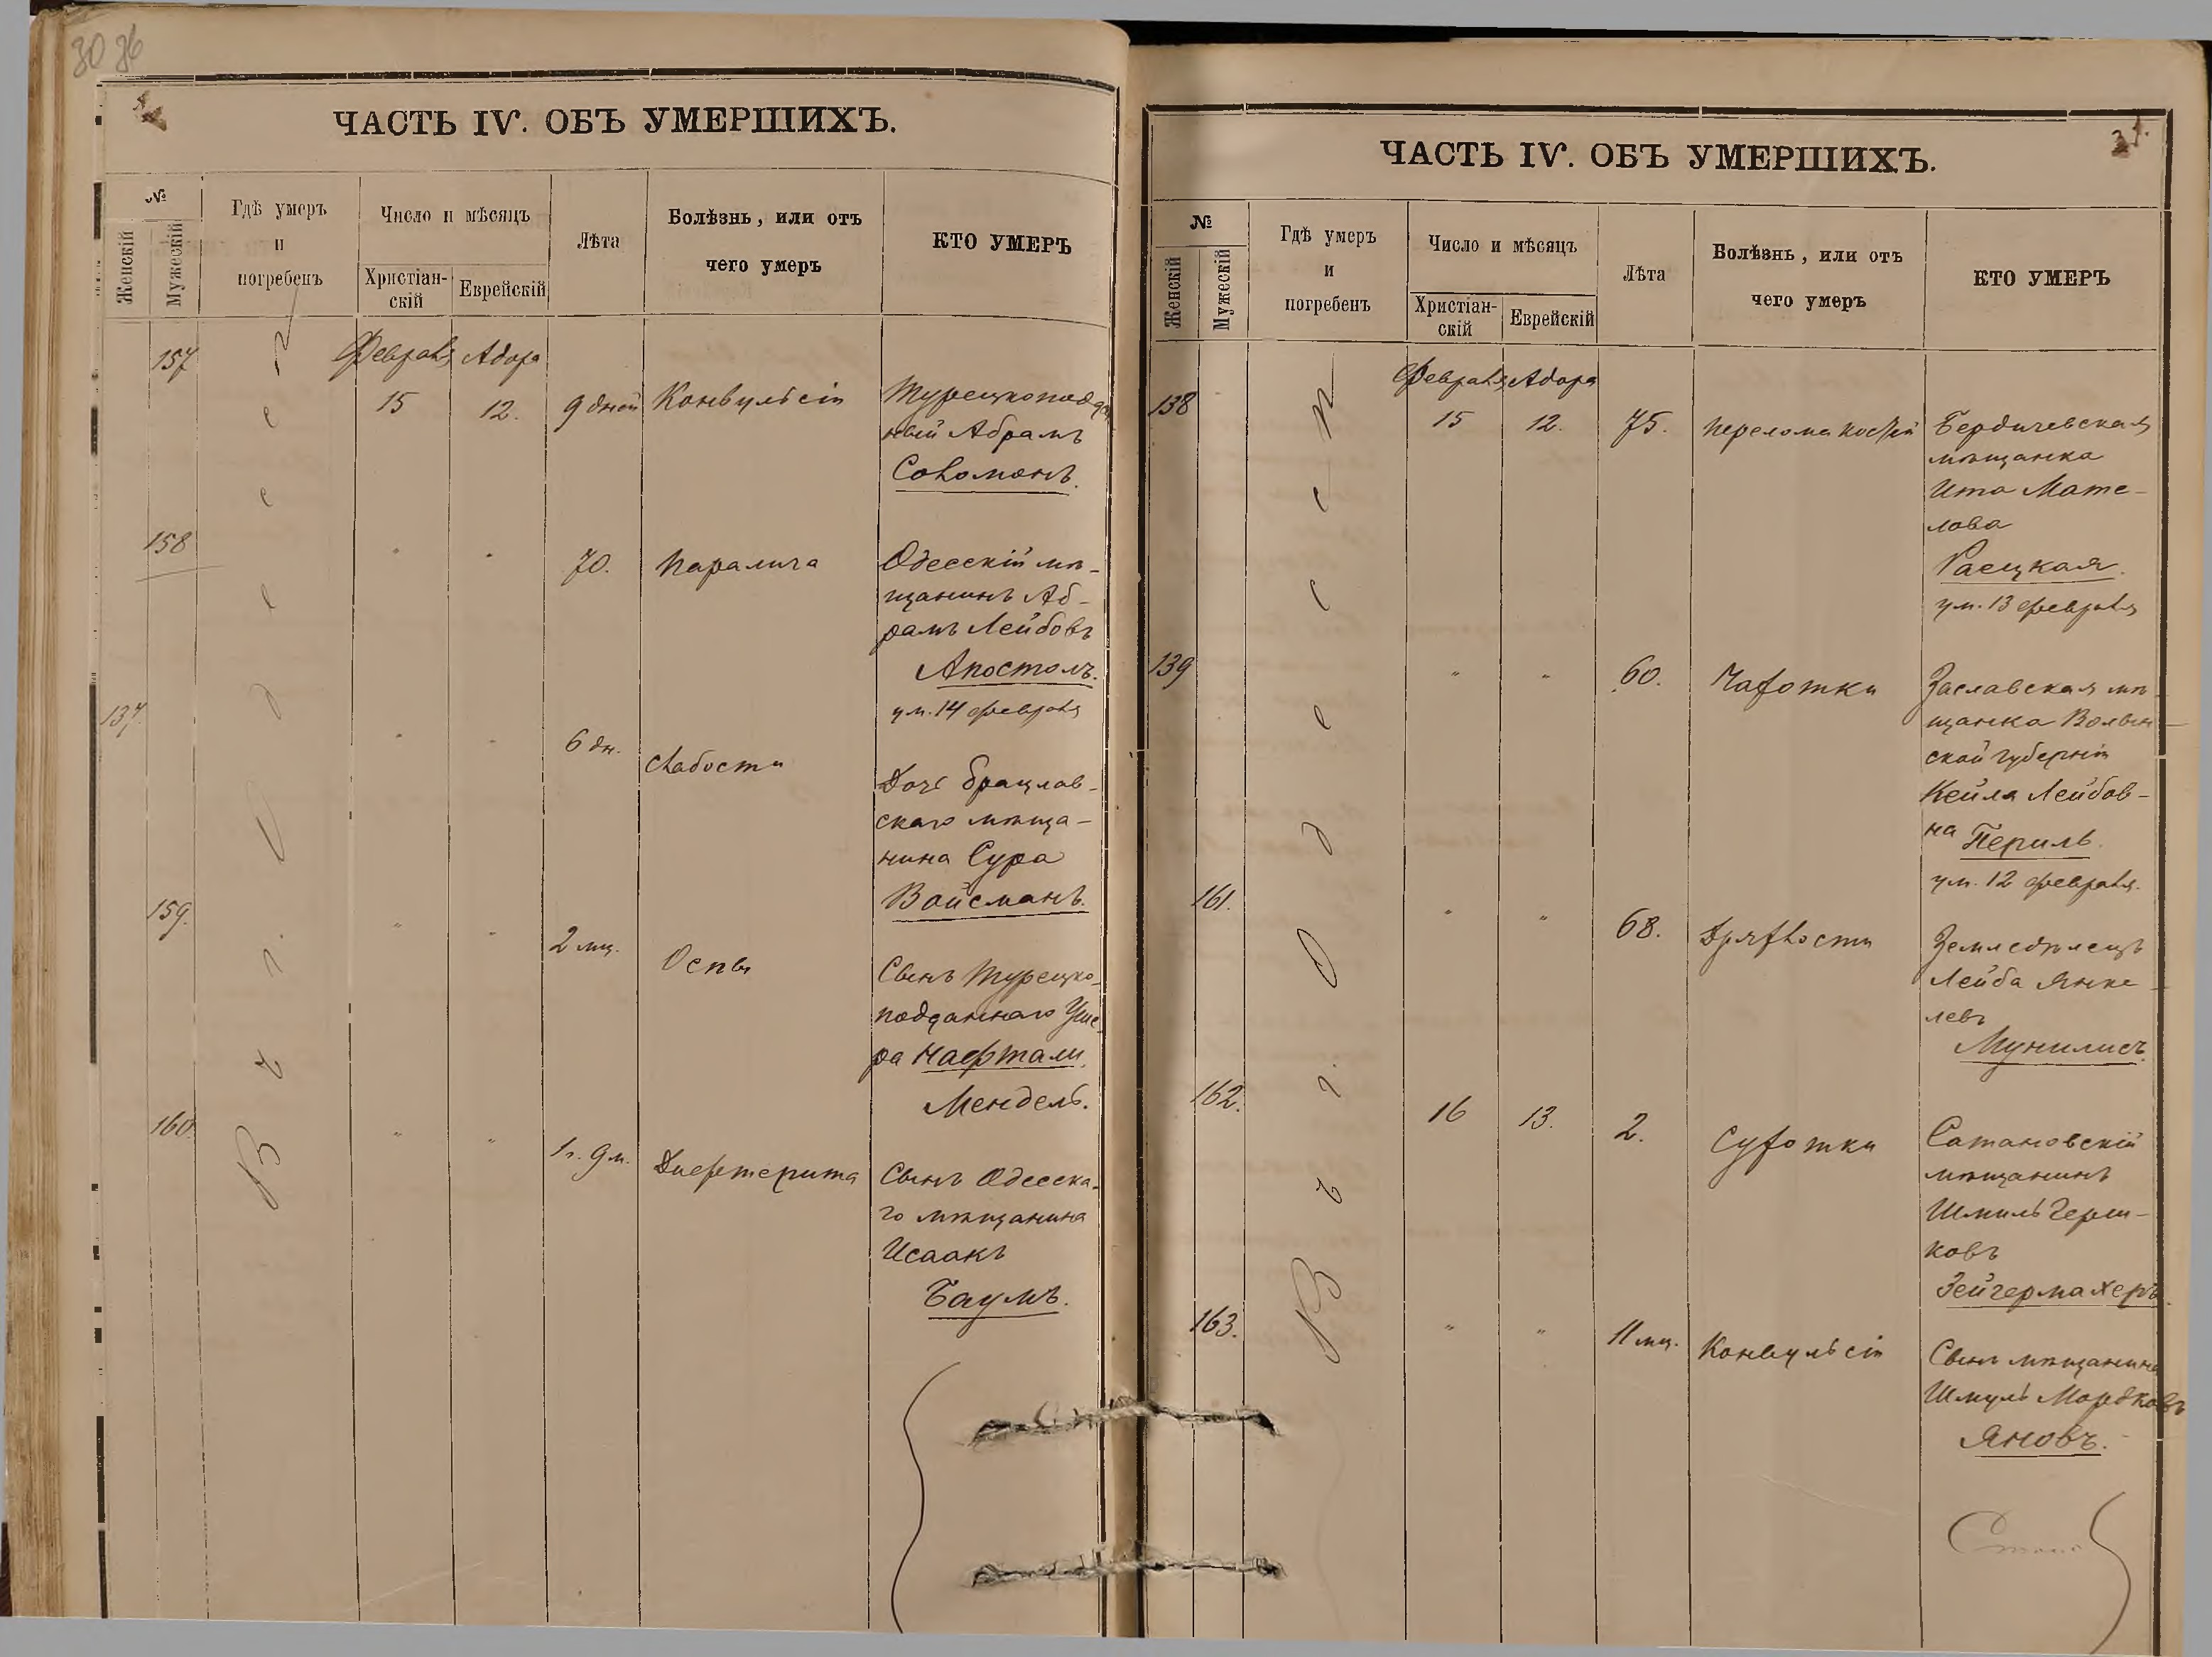 30 36
ЧАСТЬ IV. ОБЪ УМЕРШИХЪ.
№
Женскій
Мужескій
Гдѣ умеръ
и
погребенъ
Число и мѣсяцъ
Христіан-
скій
Еврейскій
Лѣта
Болѣзнь, или отъ
чего умеръ
КТО УМЕРЪ
Въ г. Одессе
Февраля Адора
157
15 12. 9 дней Конвульсіи Турецкоподдан
ный Абрамъ
Соломонъ.
158 " " 70. Паралича Одесскій мѣ-
щанинъ Аб-
рамъ Лейбовъ
Апостолъ.
ум. 14 февраля
137. " " 6 дн. Слабости Дочь брацлав-
скаго мѣща-
нина Сура
Вайсманъ.
159. " " 2 мц. Оспы Сынъ Турецко-
подданнаго Уше
ра Нафтали
Мендель.
160. " " 1 г. 9 м. Дифтерита Сынъ Одесска-
го мѣщанина
Исаакъ
Баумъ.
31.
ЧАСТЬ IV. ОБЪ УМЕРШИХЪ.
№
Женскій
Мужескій
Гдѣ умеръ
и
погребенъ
Число и мѣсяцъ
Христіан-
скій
Еврейскій
Лѣта
Болѣзнь, или отъ
чего умеръ
КТО УМЕРЪ
Въ г. Одессе
Февраля Адора
138 15 12. 75. Перелома костей Бердичевская
мѣщанка
Ита Мате-
лова
Раецкая.
ум. 13 февраля
139 " " 60. Чахотки Заславская мѣ
щанка Волын
ской губерніи
Кейла Лейбов-
на Периль.
ум. 12 февраля.
161. " " 68. Дряхлости Земледѣлецъ
Лейба Янке
левъ
Мунилисъ.
162. 16 13. 2. Сухотки Сатановскій
мѣщанинъ
Шмиль Герш-
ковъ
Зейгермахеръ.
163. " " 11 мц. Конвульсіи Сынъ мѣщанина
Шмуль Мордковъ
Яновъ.